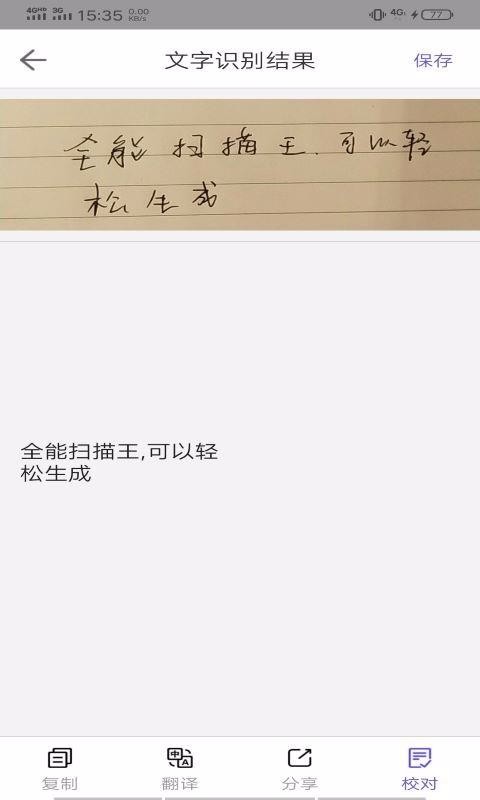 4G HD 3G 15:35 0.00 KB/s 4G 77
文字识别结果 保存
全能扫描王.可以轻
松生成
全能扫描王,可以轻
松生成
复制 翻译 分享 校对